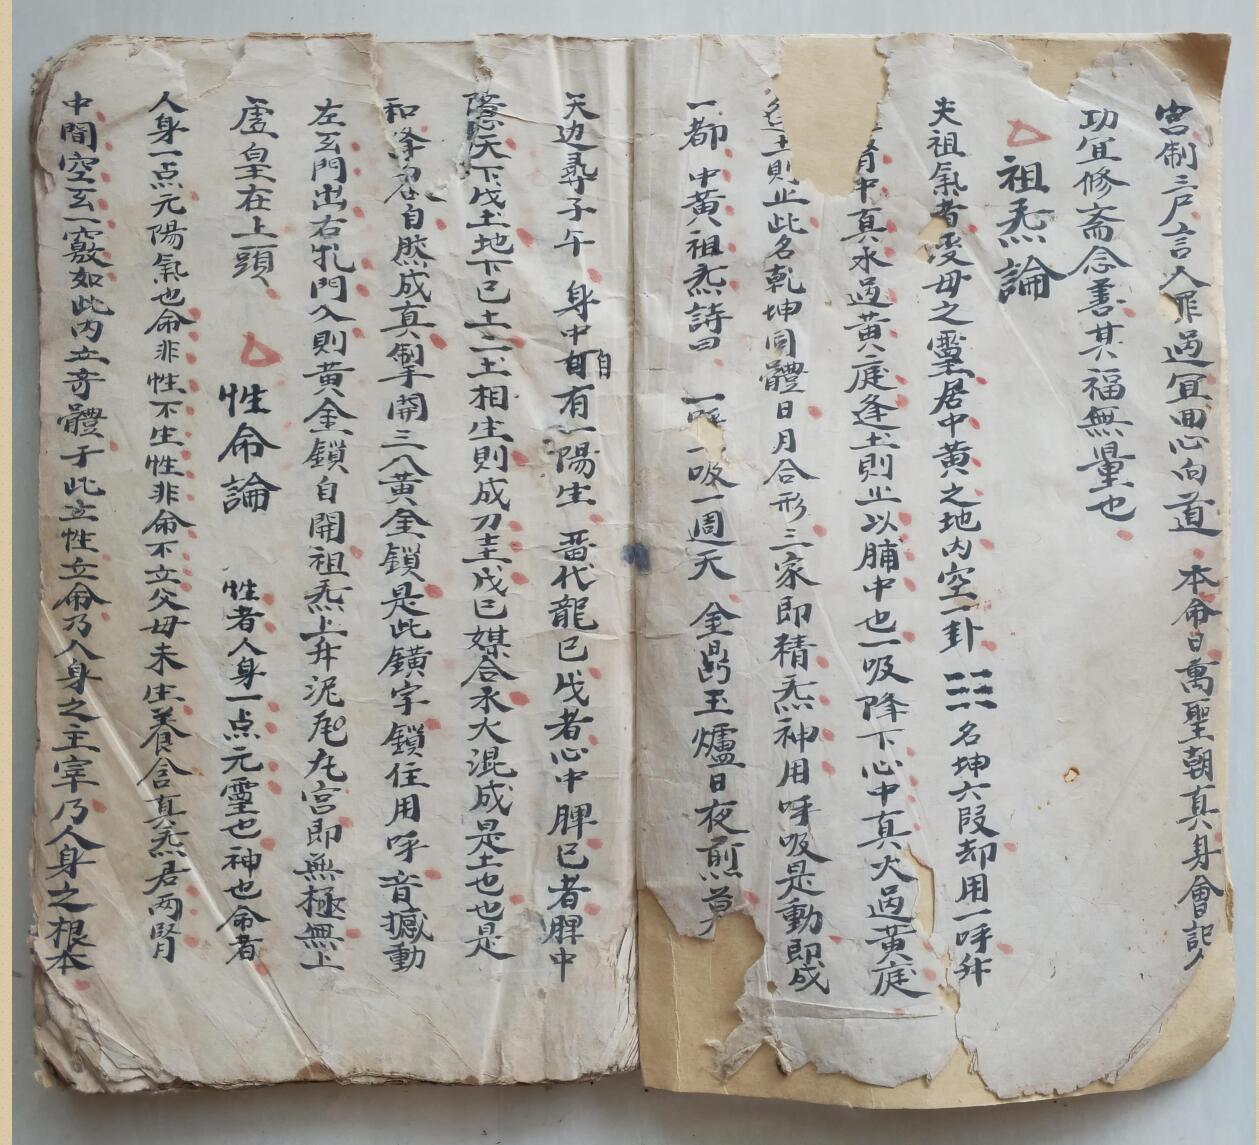 宫制三尸言人罪過宜回心向道　本命日萬聖朝真身會記人
功宜修斋念善其福無量也
祖炁論
夫祖氣者受母之靈居中黄之地内空一卦☷名坤六段却用一呼升
腎中真水過黄庭逢土則止以脯中也一吸降下心中真火過黄庭
逢土則止此名乾坤同體日月合形三家即精炁神用呼吸是動即成
一都　中黄祖炁詩曰　一呼一吸一週天　金鼎玉爐日夜煎莫
天边尋子午　身中自自有一陽生　畨代龍巳戊者心中脾巳者脾中
天下戊土地下巳土二土相生則成刀圭戊巳媒合水火混成是土也也是
和自然成真掣開三八黄金鎖是此鐄字鎖住用呼音撼動
左玄門出右牝門入則黄金鎖自開祖炁上升泥尾九宫即無極無上
虚皇在上頭
性命論　性者人身一点元靈也神也命者
人身一点元陽氣也命非性不生性非命不立父母未生養含真炁君两腎
中間空玄一竅如此内立竒體于此立性立命乃人身之主宰乃人身之根本